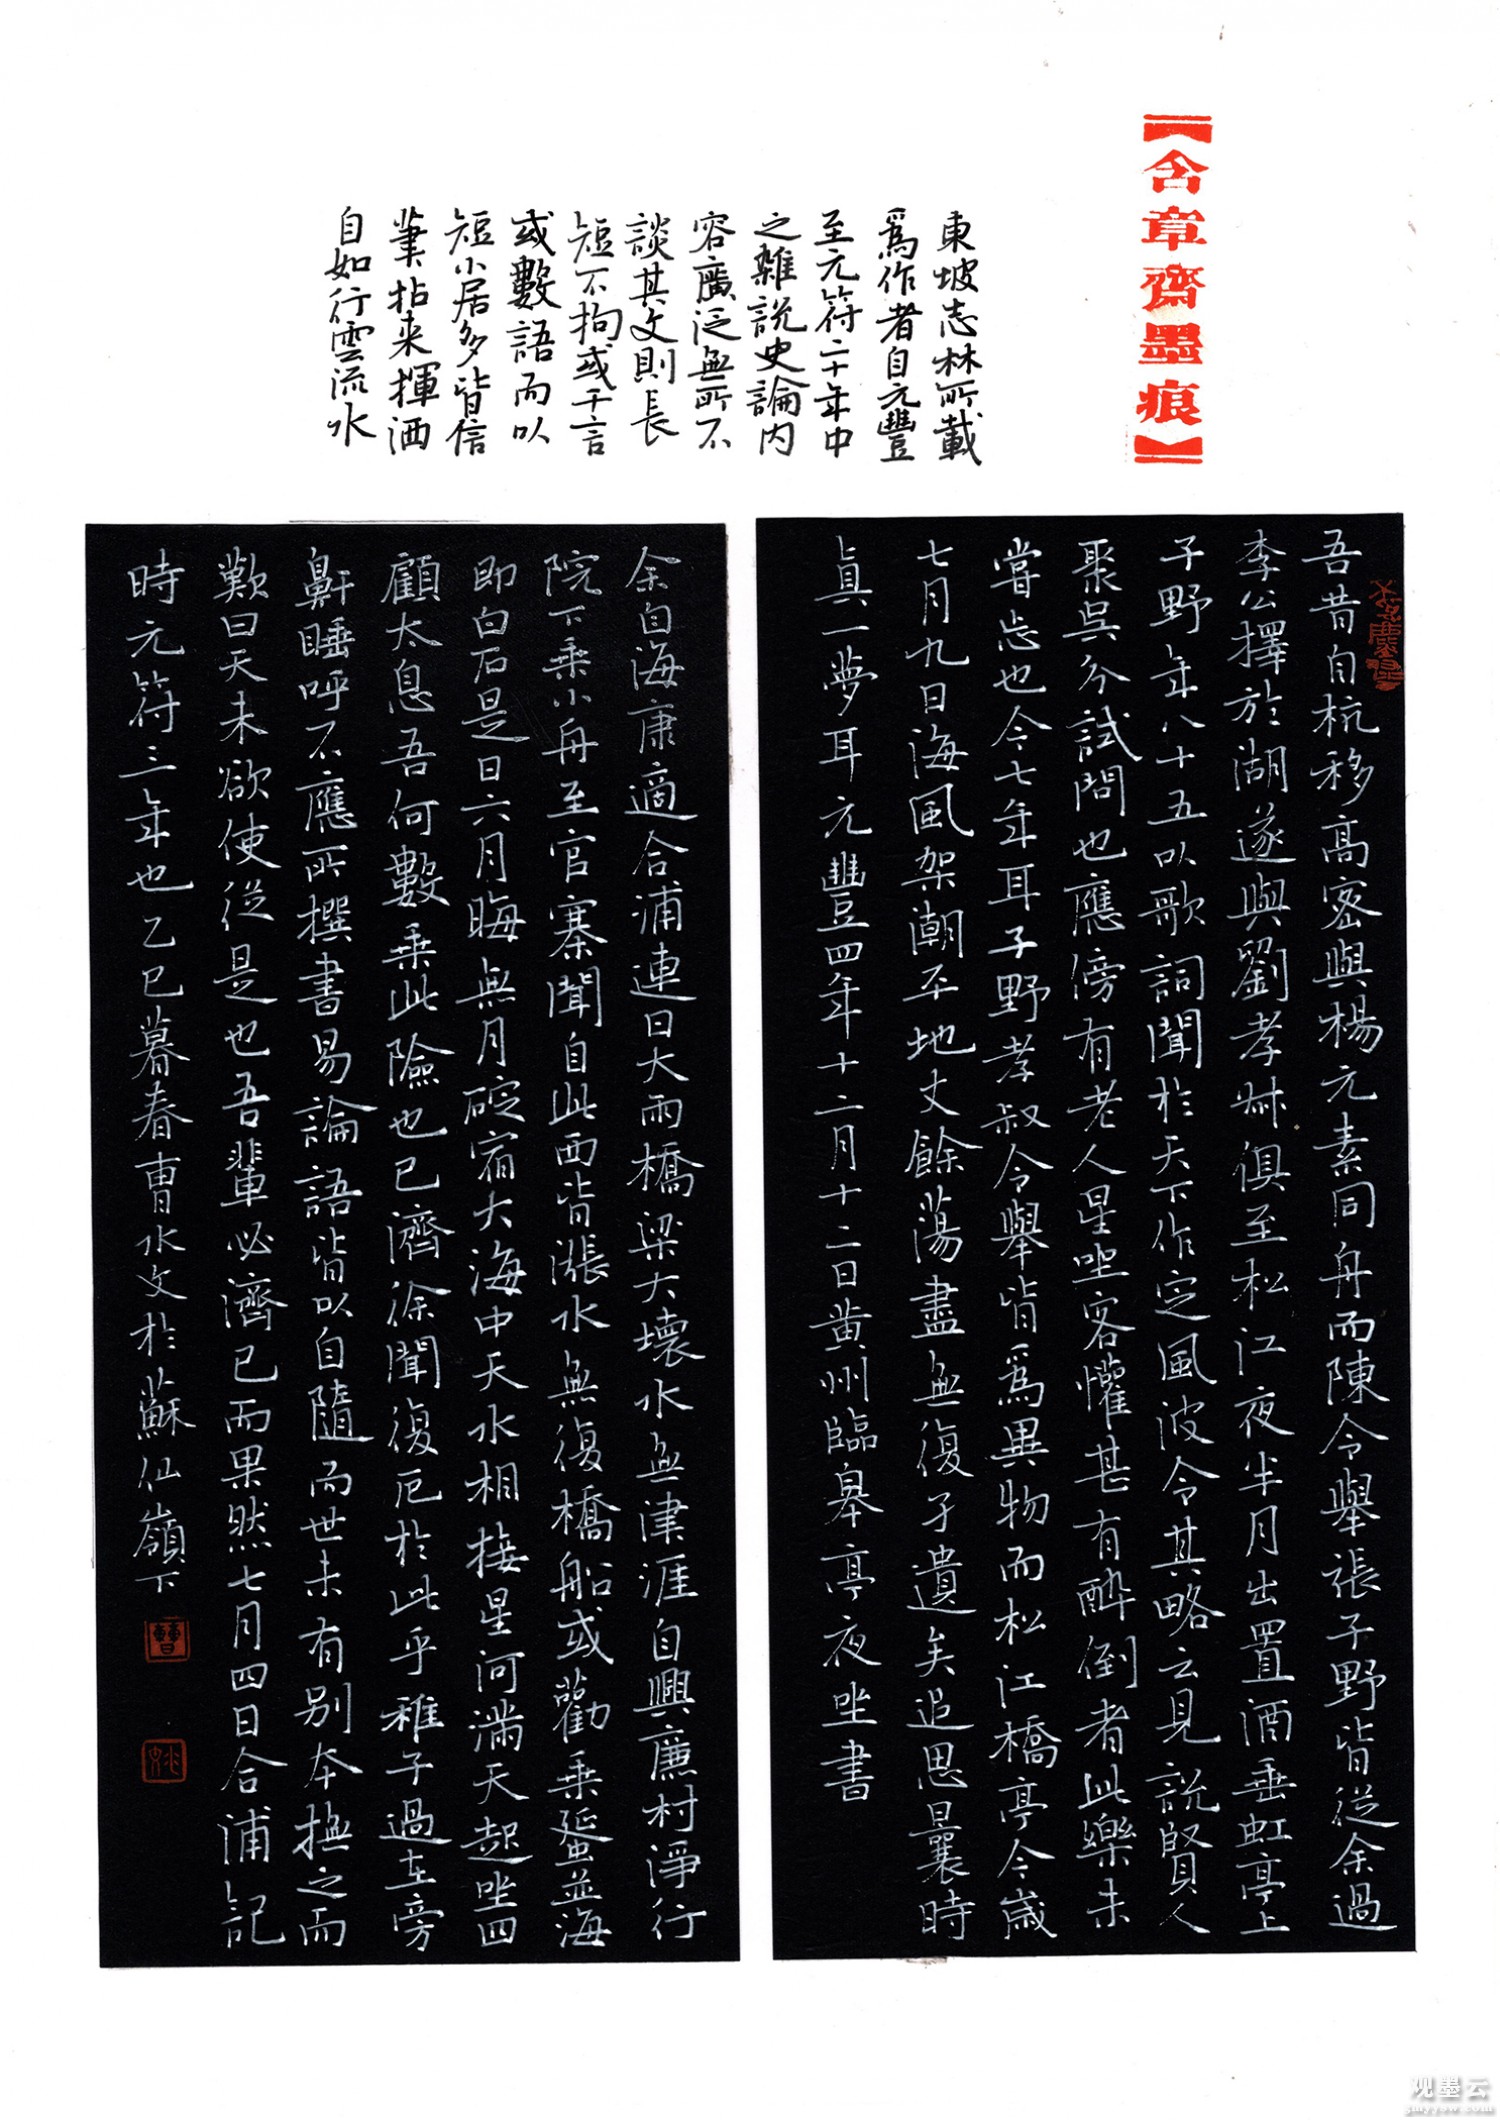 【含章齋墨痕】
東坡志林所載
爲作者自元豐
至元符二十年中
之雜說史論內
容廣泛無所不
談其文則長
短不拘或千言
或數語而以
短小居多皆信
筆拈来揮洒
自如行雲流水
吾昔自杭移高密與楊元素同舟而陳令舉張子野皆從余過
李公擇於湖遂與劉孝叔俱至松江夜半月出置酒垂虹亭上
子野年八十五以歌詞聞於天下作定風波令其略云見說賢人
聚吳分試問也應傍有老人星坐客懽甚有醉倒者此樂未
嘗忘也今七年耳子野孝叔令舉皆爲異物而松江橋亭今歲
七月九日海風架潮平地丈餘蕩盡無復孑遺矣追思曩時
真一夢耳元豐四年十二月十二日黄州臨皋亭夜坐書
余自海康適合浦連日大雨橋梁大壞水無津涯自興廉村淨行
院下乗小舟至官寨聞自此西皆漲水無復橋船或勸乗蜑並海
即白石是日六月晦無月碇宿大海中天水相接星河滿天起坐四
顧太息吾何數乗此險也已濟徐聞復厄於此乎稚子過在旁
鼾睡呼不應所撰書易論語皆以自隨而世未有别本撫之而
歎曰天未欲使從是也吾輩必濟已而果然七月四日合浦記
時元符三年也乙巳暮春曹水文於蘇仙嶺下
曹
观墨云
gmyyow.com